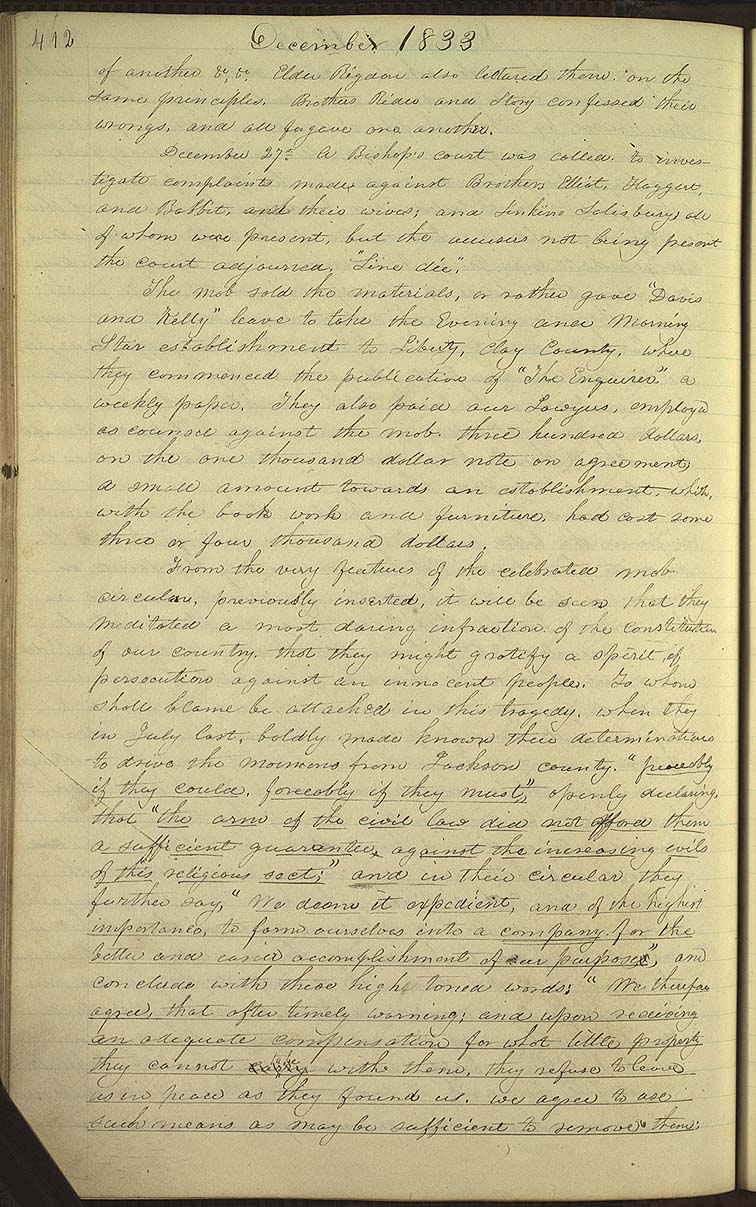 412 December 1833
of another &c, &c. Elder Rigdon also lectured them on the
same principles. Brothers Rider and Story confessed their
wrongs, and all forgave one another.
December 27th A Bishop's court was called to inves-
tigate complaints made against Brothers Elliot, Haggert,
and Babbit, and their wives; and Jenkins Salisbury, all
of whom were present, but the accusers not being present
the court adjourned, "Sine die".
The mob sold the materials, or rather gave "Davis
and Kelly" leave to take the Evening and Morning
Star establishment to Liberty, Clay County, where
they commenced the publication of "The Enquirer" a
weekly paper. They also paid our Lawyers, employed
as counsel against the mob. three hundred dollars,
on the one thousand dollar note on agreement,
a small amount towards an establishment, which,
with the book work and furniture, had cost some
three or four thousand dollars.
From the very features of the celebrated mob
circular, previously inserted, it will be seen that they
meditated a most daring infraction of the constitution
of our country, that they might gratify a spirit of
persecution against an innocent people. To whom
shall blame be attached in this tragedy, when they
in July last, boldly made known their determination
to drive the mormons from Jackson county. "peaceably
if they could, forceably if they must", openly declaring,
that "the arm of the civil law did not afford them
a sufficient guarantee, against the increasing evils
of this religious sect;" and in their circular they
further say, "We deem it expedient, and of the highest
importance, to form ourselves into a company for the
better and easier accomplishment of our purposes", and
conclude with these high toned words: "We therefore
agree, that after timely warning; and upon receiving
an adequate compensation for what little property
they cannot take with them, they refuse to leave
us in peace as they found us, we agree to use
such means as may be sufficient to remove them: